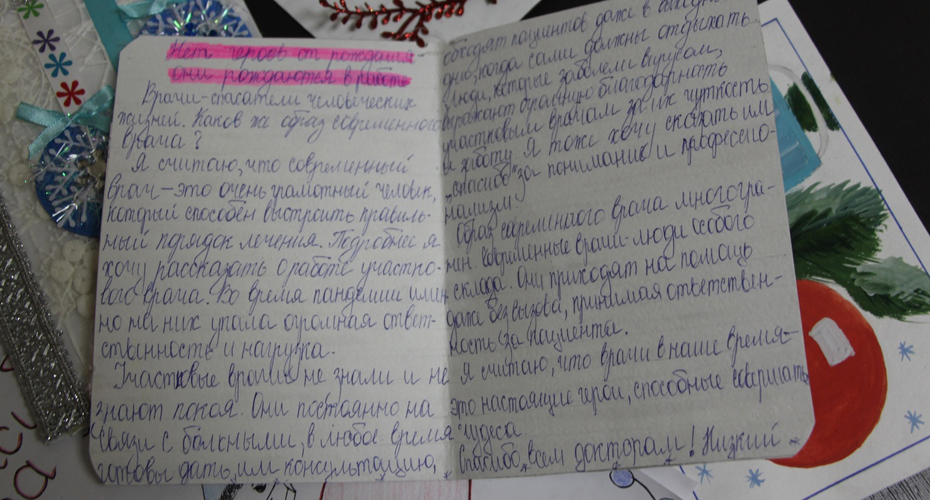 Нет героев от рождения
они рождаются в работе
Врачи-спасатели человеческих
жизней. Каков же образ современного
врача?
Я считаю, что современный
врач-это очень грамотный человек,
который способен выстроить правиль-
ный порядок лечения. Подробнее я
хочу рассказать о работе участко-
вого врача. Во время пандемии имен
но на них упала огромная ответ-
ственность и нагрузка.
Участковые врачи не знали и не
знают покоя. Они постоянно на
связи с больными, в любое время
готовы дать им консультацию,
обходят пациентов даже в
дни, когда сами должны отдыхать
Люди, которые заболели вирусом,
выражают огромную благодарность
участковым врачам за их чуткость
и заботу. Я тоже хочу сказать им
"спасибо" за понимание и профессио-
нализм.
Образ современного врача многогра-
нен современные врачи-люди особого
склада. Они приходят на помощь
даже без вызова, принимая ответствен-
ность за пациента.
Я считаю, что врачи в наше время-
это настоящие герои, способные совершать
чудеса
Спасибо всем докторам! Низкий